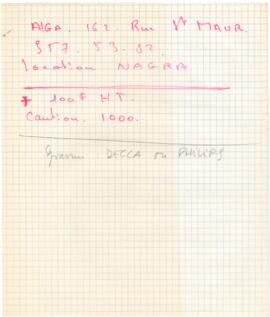 AIGA. 162. Rue St MAUR.
357. 53. 02.
location NAGRA
100F HT.
Caution. 1000.
DECCA ou PHILIPS